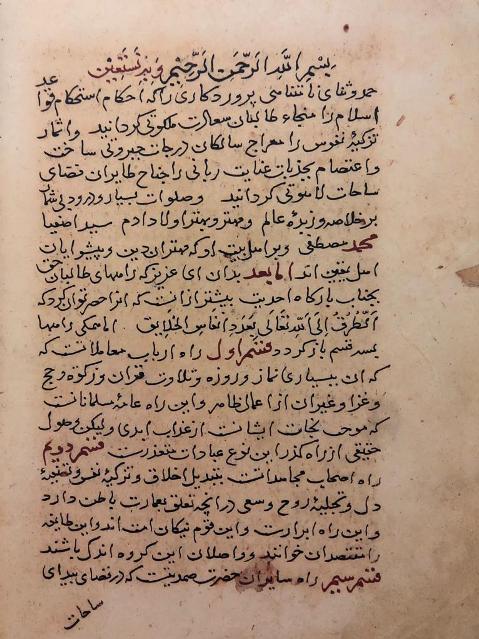 بسم الله الرحمن الرحیم وبه نستعین
حمد وثنای نامتناهی پروردکاری را که احکام استحکام قواعد
اسلام را منجاء طالبان سعادت ملکوتی کردانید واثمار
تزکیهٔ نفوس را معراج سالکان درجات جبروتی ساخت
واعتصام بجذبات عنایت ربانی را جناح طایران فضای
ساحات لاهوتی کردانید وصلوات بسیار ودرود بی شمار
بر خلاصه وزبدهٔ عالم ومهتر وبهتر اولاد ادم سید اصفیا
محمد مصطفی وبر اهل بیت او که مهتران دین وپیشوایان
اهل یقین اند اما بعد بدان ای عزیز که راههای طالبان حق
بجناب بارکاه احدیت بیشتر ازانست که انرا حصر توان کرد که
الطرق الی الله تعالی بعدد انفاس الخلایق اما همکی راهها
بسه قسم باز کردد قسم اول راه ارباب معاملاتست که
که ان بسیاری نماز وروزه وتلاوت قران وزکوة وحج
وغزا وغیران از اعمال ظاهر واین راه عامهٔ مسلمانانست
که موجب نجات ایشانست از عذاب ابدی ولیکن وصول
حقیقی از راه کذر این نوع عبادات متعذرست قسم دویم
راه اصحاب مجاهداتست بتبدیل اخلاق وتزکیهٔ نفس وتصفیهٔ
دل وتجلیهٔ روح وسعی در انچه تعلق بعمارت باطن دارد
واین راه ابرارست واین قوم نیکان امت اند واین طایفه
را مقتصدان خوانند وواصلان این کروه اندک باشند
قسم سیم راه سایران حضرت صمدیتست که در فضای بیدای
ساحات